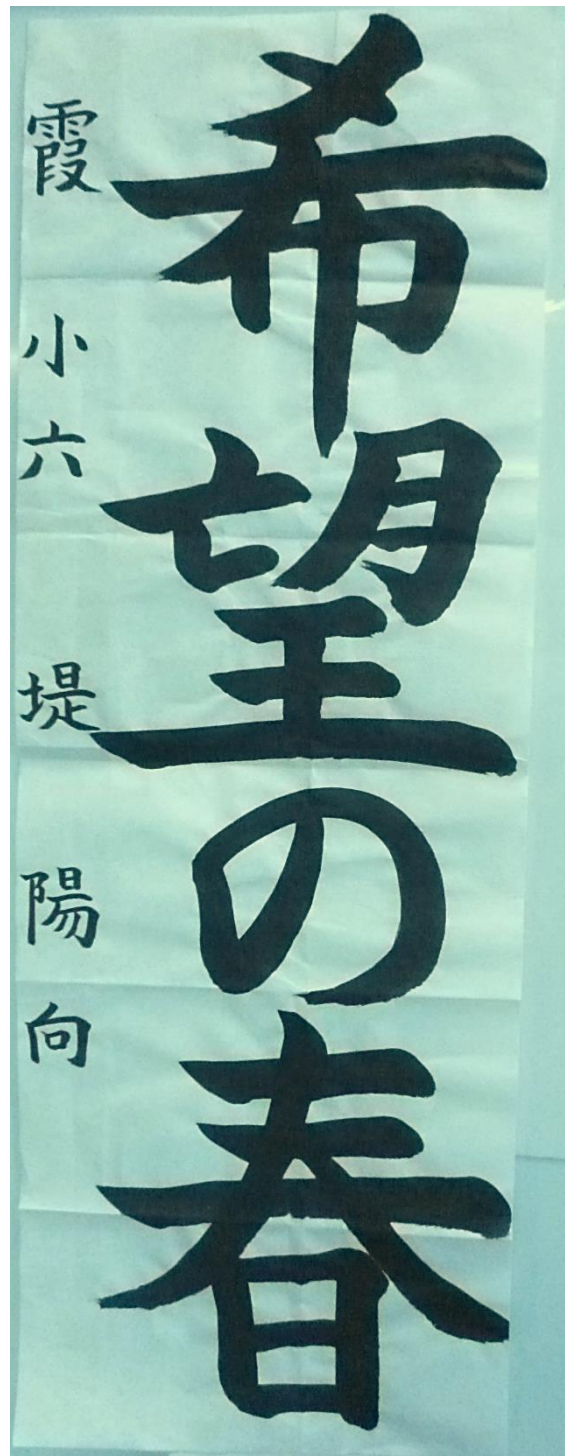 希望の春
霞 小六 堤 陽向